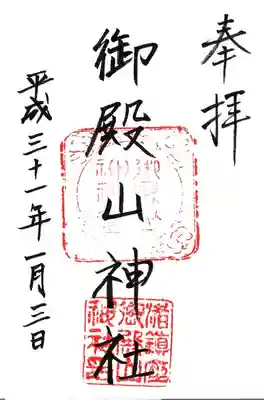 奉拝
御殿山神社
平成三十一年一月三日